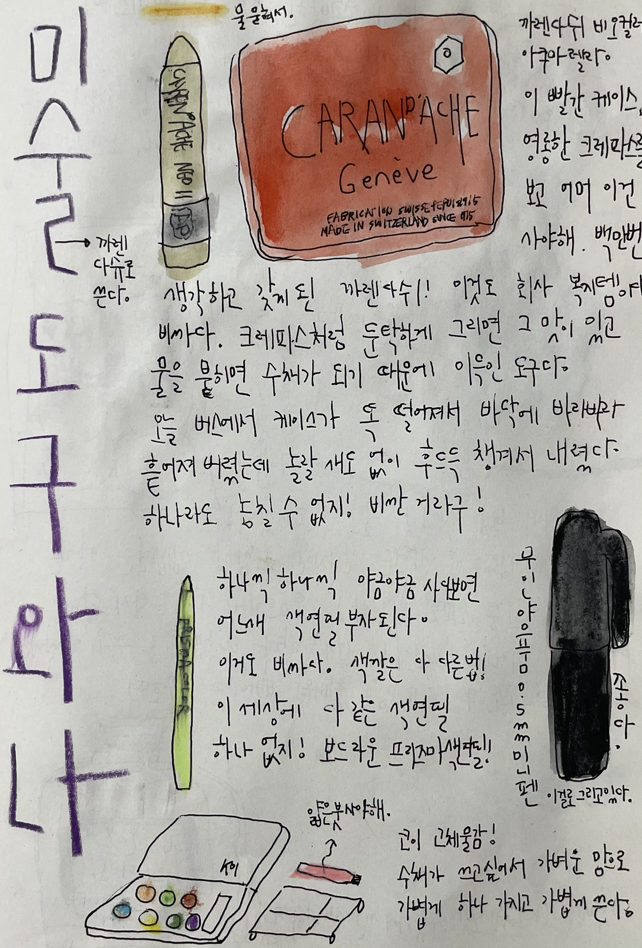 미술도구와 나
물 묻혀서.
CARAN D'ACHE NEO II
CARAN D'ACHE
Genève
FABRICATION SUISSE DEPUIS 1915
MADE IN SWITZERLAND SINCE 1915
까렌다쉬 네오컬러
아쿠아렐라.
이 빨간 케이스,
영롱한 크레파스를
보고 어머 이건
사야해. 백만번
까렌
다슈로
쓴다.
생각하고 갖게 된 까렌다쉬! 이것도 회사 복지템이다
비싸다. 크레파스처럼 둔탁하게 그리면 그 맛이 있고
물을 붙히면 수채가 되기 때문에 이득인 도구다.
오늘 버스에서 케이스가 똑 떨어져서 바닥에 바라바라
흩어져 버렸는데 놀랄 새도 없이 후드득 챙겨서 내렸다.
하나라도 놓칠 수 없지! 비싼 거라구!
PRISMACOLOR
하나씩 하나씩 야금야금 사다보면
어느새 색연필 부자 된다.
이거도 비싸다. 색깔은 다 다른법!
이 세상에 다 같은 색연필
하나 없지! 보드라운 프리즈마색연필!
무인양품 0.5mm 미니 펜
좋아.
이걸로 그리고있다.
얇은붓 사야해.
코이
코이 고체물감!
수채가 쓰고싶어서 가벼운 맘으로
가볍게 하나 가지고 가볍게 쓴다.